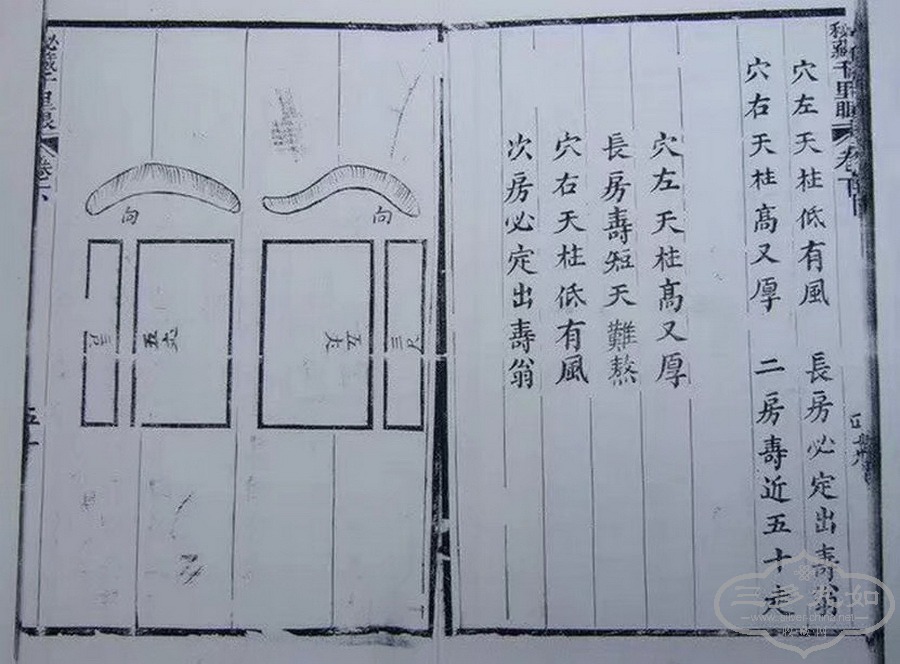 秘藏千里眼
穴左天柱低有風　長房必定出壽翁
穴右天柱髙又厚　二房壽近五十走
穴左天柱髙又厚
長房壽短天難熬
穴右天柱低有風
次房必定出壽翁
向
三尺
五丈
向
五丈
三尺
秘藏千里眼
三多九如